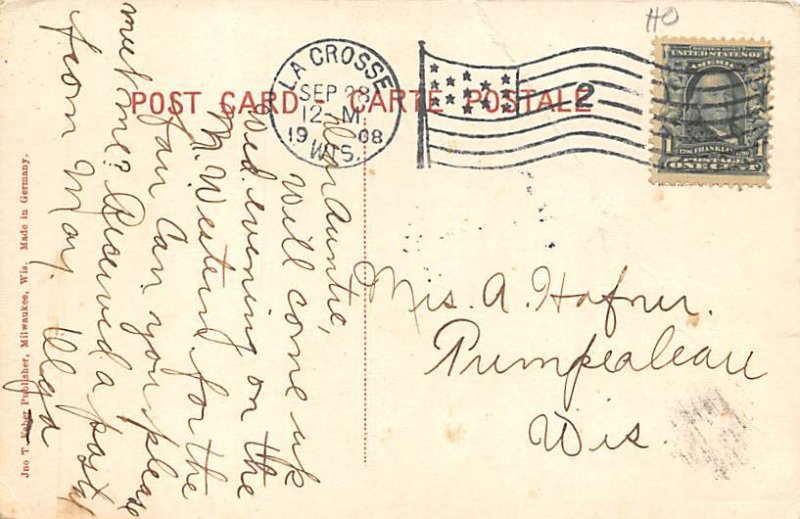 HO
POST CARD - CARTE POSTALE
LA CROSSE
SEP 28
12-M
1908
WIS.
2
SERIES 1902
UNITED STATES OF
1 FRANKLIN 1
ONE CENT
Dear Auntie,
Will come up
Wed evening on the
N. Western for the
fair Can you please
meet me? Received a postal
from May. Olga
Mrs. A. Hafner.
Trempealeau
Wis.
Jno T. Faber Publisher, Milwaukee, Wis. Made in Germany.